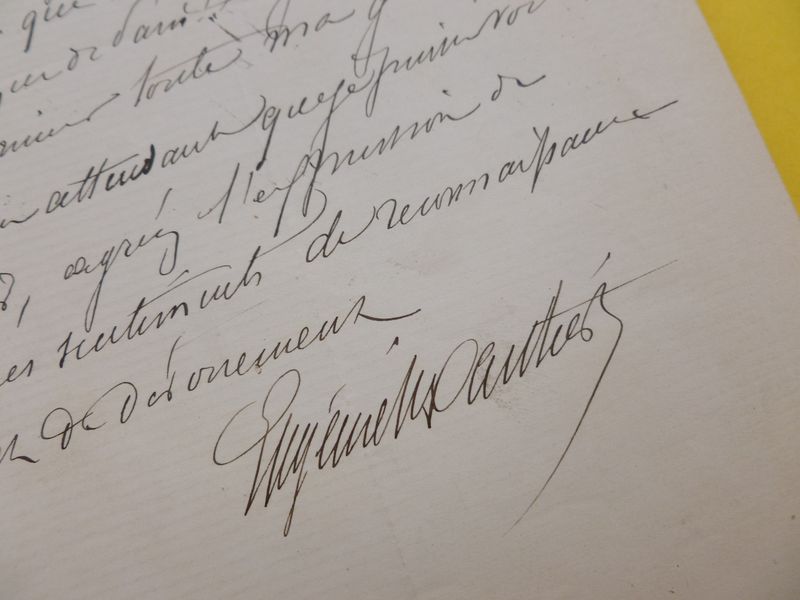 que
toute ma
attendant que je puisse
, agréez l'expression de
sentiments de reconnaissance
de dévouement
Eugénie Gauthier